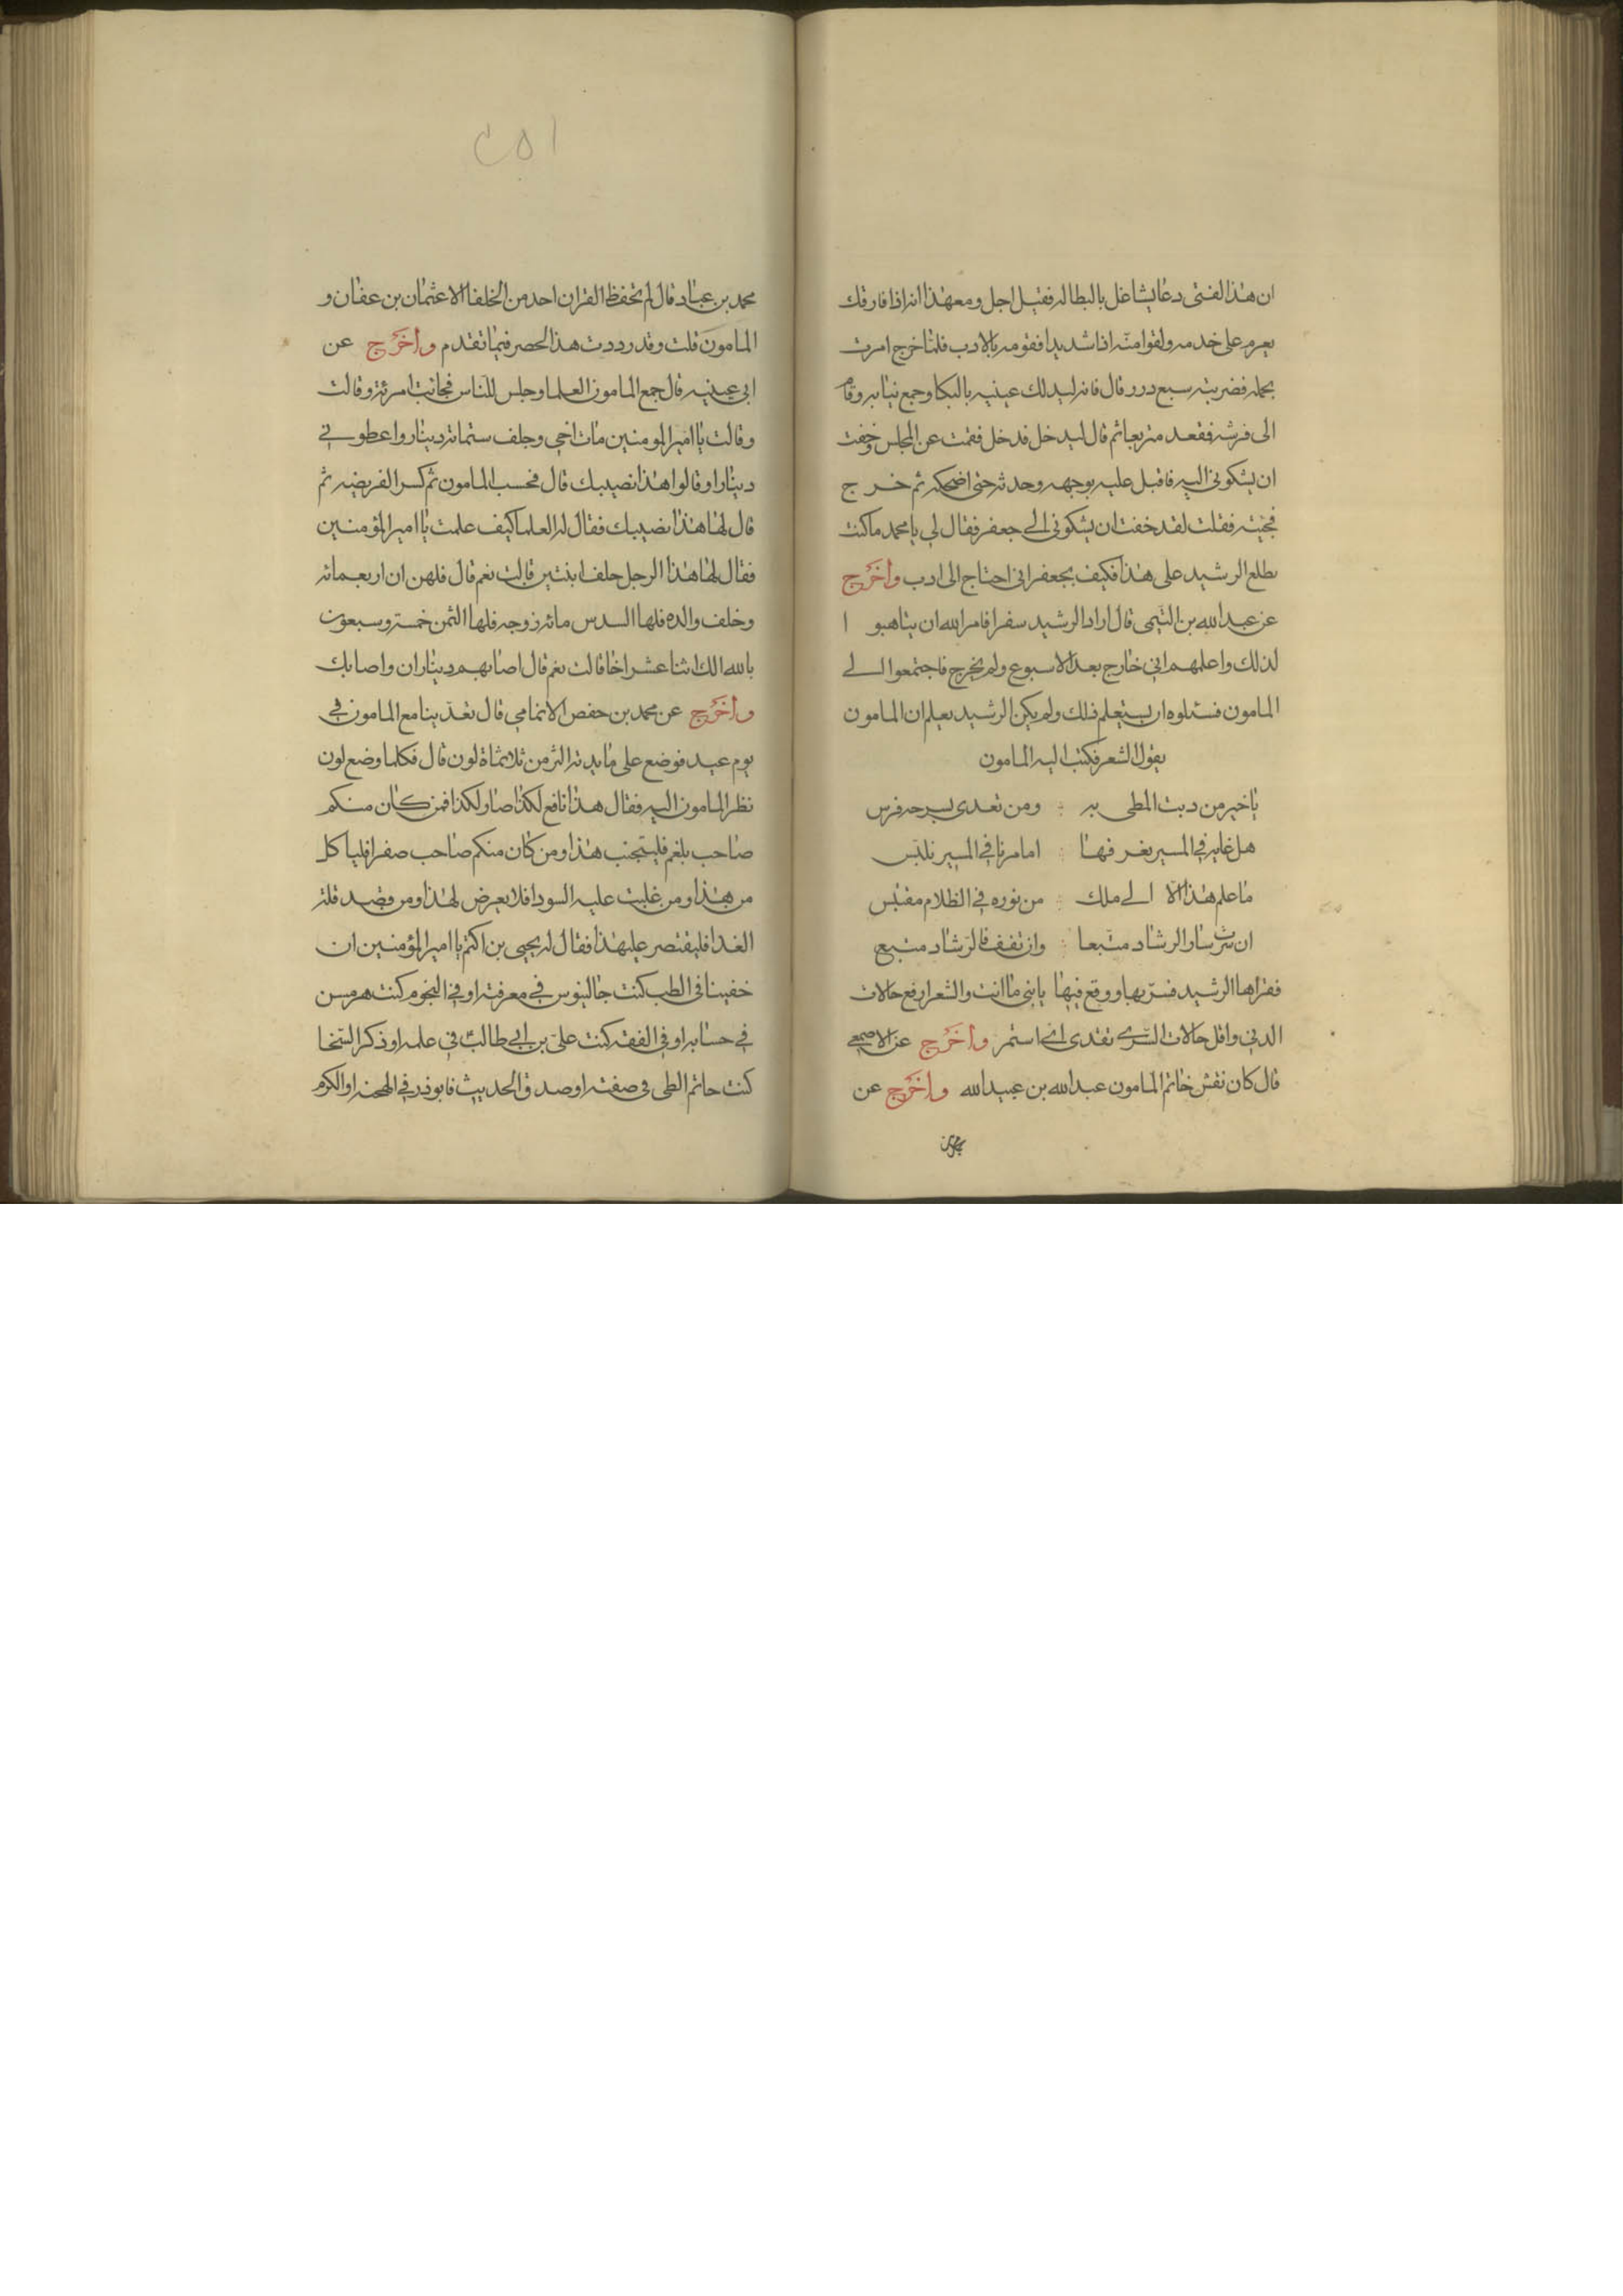 ان هذا الفتى دعا يشاغل بالبطاله فقيل اجل ومعهذا انه اذا فارقك
يعرم على خدمه ولقوا منه اذا شديدا فقومه بالادب فلما خرج امرت
بحمله فضربته سبع درر قال فانه ليدلك عينيه بالبكا وجمع ثيابه وقام
الى فرشه فقعد متربعا ثم قال ليدخل فدخل فقمت عن المجلس وخفت
ان يشكوني اليه فاقبل عليه بوجهه وحدثه حتى اضحكه ثم خرج
فجئته فقلت لقد خفت ان يشكوني الى جعفر فقال لي يا محمد ما كنت
يطلع الرشيد على هذا فكيف بجعفر اني احتاج الى ادب واخرج
عن عبد الله بن التيمي قال اراد الرشيد سفرا فامر الله ان يتاهبوا
لذلك واعلمهم اني خارج بعد الاسبوع ولم يخرج فاجتمعوا الى
المامون فسئلوه ان يستعلم ذلك ولم يكن الرشيد يعلم ان المامون
يقول الشعر فكتب اليه المامون
يا خير من دبت المطي به ومن تعدى بسرجه فرس
هل غايه في المسير نعرفها ام امرنا في المسير نلتبس
ما علم هذا الا الى ملك من نوره في الظلام مقتبس
ان سرت سار الرشاد متبعا وان تقف فالرشاد متبع
فقراها الرشيد فسر بها ووقع فيها يا بني ما انت والشعر ارفع حالات
الدني واقل حالات السري تقدى اي استمر واخرج عن الاصمعي
قال كان نقش خاتم المامون عبد الله بن عبيد الله واخرج عن
محمد بن
٢٥١
محمد بن عباد قال لم تحفظ القران احد من الخلفا الا عثمان بن عفان و
المامون قلت وقد رددت هذا الحصر فيما تقدم واخرج عن
ابي عيينه قال جمع المامون العلما وجلس للناس فجاءت امرئة وقالت
وقالت يا امير المومنين مات اخي وخلف ستمائة دينار واعطوني
دينارا وقالوا هذا نصيبك قال فحسب المامون ثم كسر الفريضه ثم
قال لها هذا نصيبك فقال له العلما كيف علمت يا امير المؤمنين
فقال لها هذا الرجل خلف ابنتين قالت نعم قال فلهن ان اربعمائه
وخلف والده فلها السدس مائه زوجه فلها الثمن خمسة وسبعون
بالله الك اثنا عشر اخا قالت نعم قال اصابهم ديناران واصابك
واخرج عن محمد بن حفص الانمامي قال تغدينا مع المامون في
يوم عيد فوضع على مايدته اكثر من ثلاثماة لون قال فكلما وضع لون
نظر المامون اليه فقال هذا نافع لكذا ضار لكذا فمن كان منكم
صاحب بلغم فليتجنب هذا ومن كان منكم صاحب صفرا فلياكل
من هذا ومن غلبت عليه السودا فلا يعرض لهذا ومن قصد قلة
الغدا فليقتصر على هذا فقال له يحيى بن اكثم يا امير المؤمنين ان
خضنا في الطب كنت جالينوس في معرفته او في النجوم كنت هرمس
في حسابه او في الفقه كنت علي بن ابي طالب في علمه او ذكر السخا
كنت حاتم الطي في صفته او صدق الحديث فابوذر في لهجته او الكرم